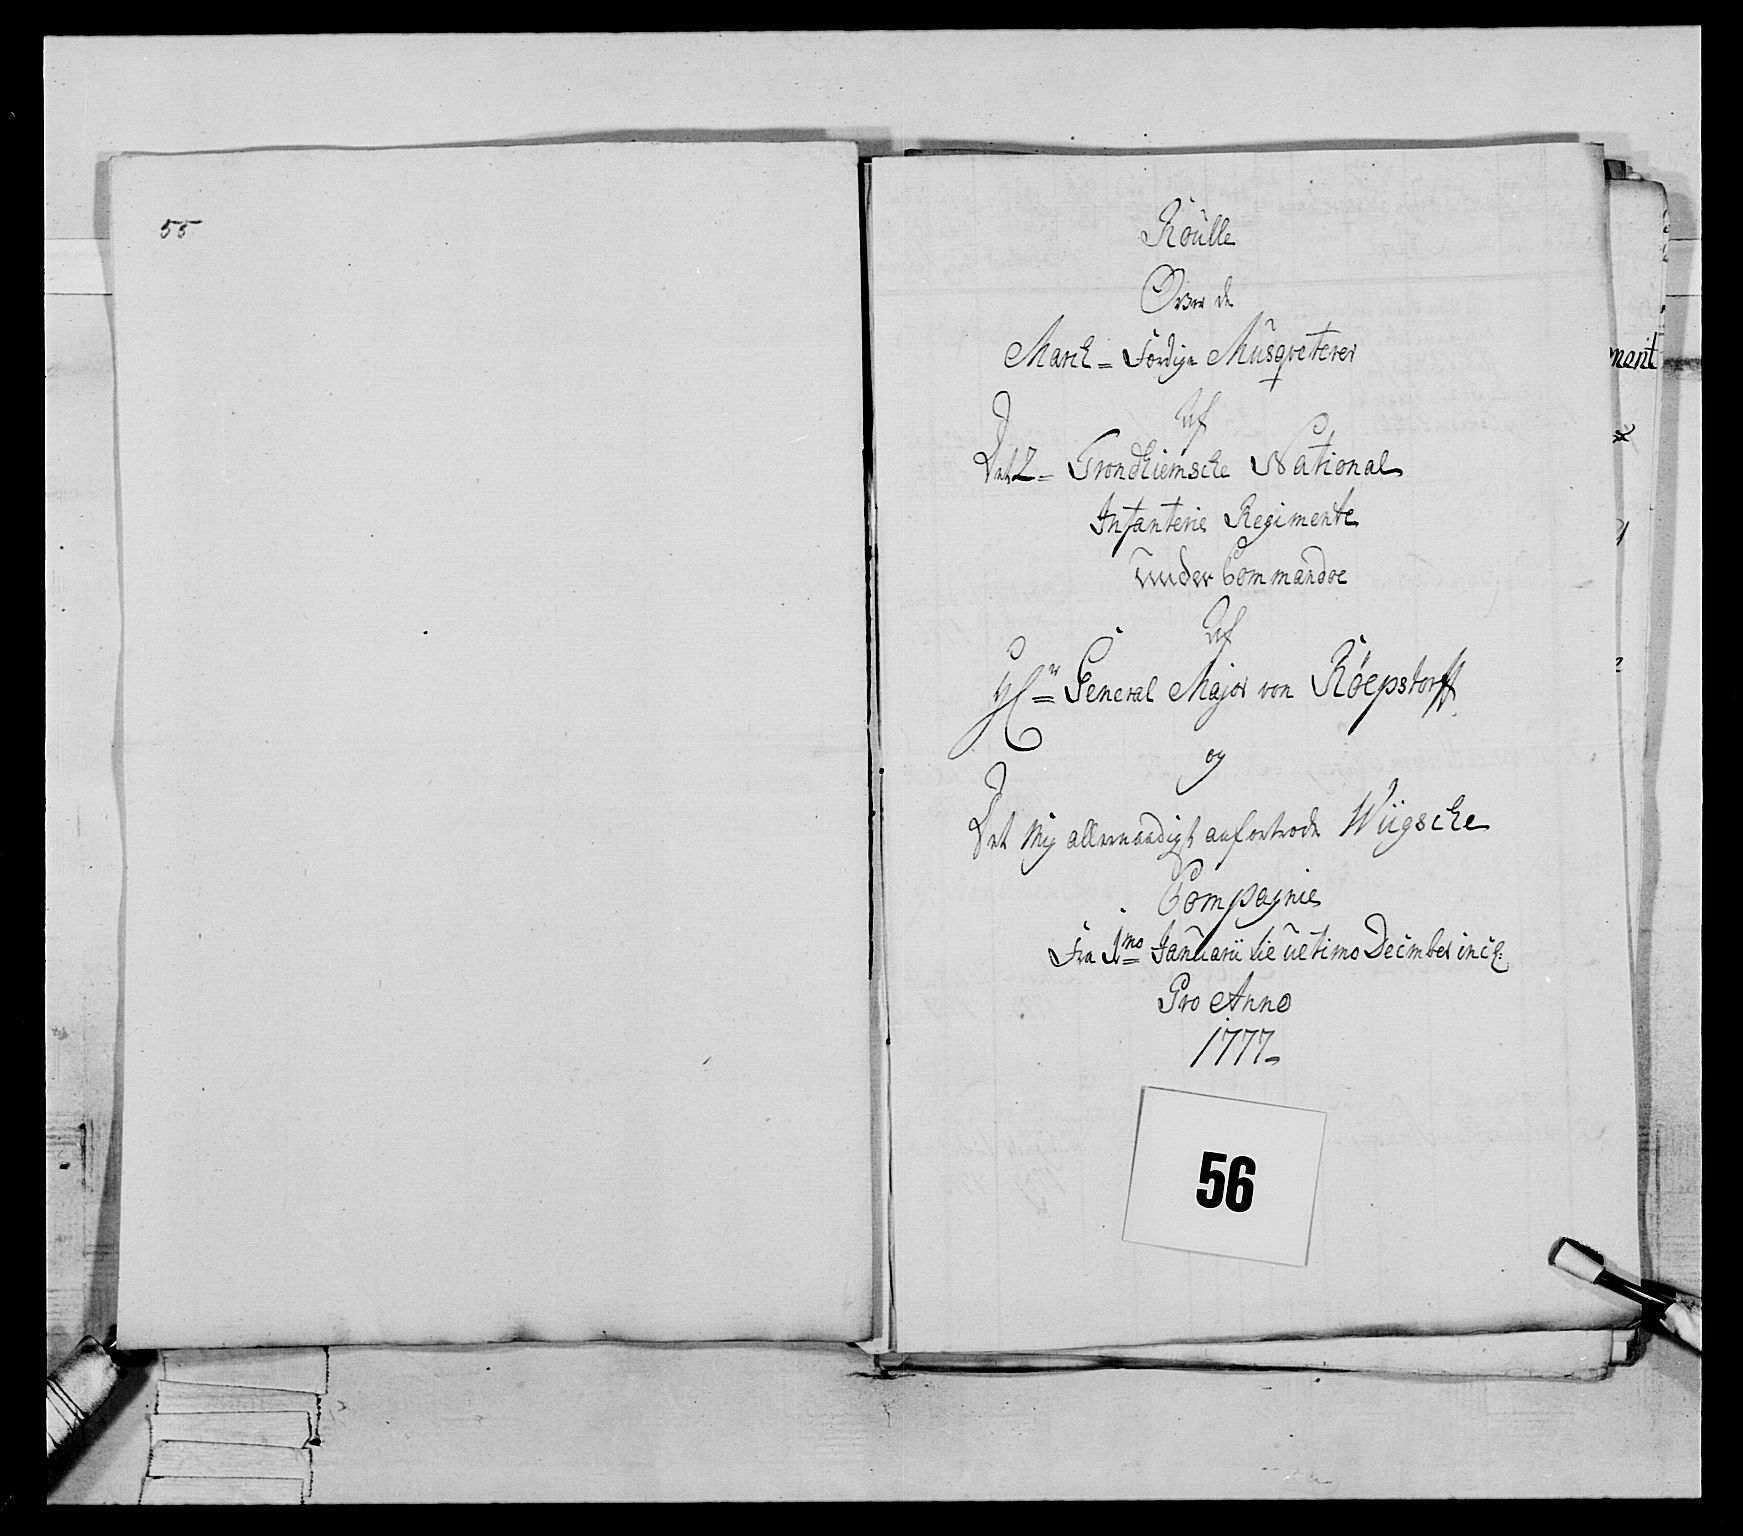 55
Roulle
Over de
March = Færdige Musqveterer
Af
Det 2= Trondhiemsche National
Infanterie Regimente
under Commandoe
Af
Hr= General Major von Röepstorff
og
Det Mig allernaadigst anfortrode Wiigsche
Compagnie
Fra 1mo Januarii tie ultimo Decimber incl:
Pro Anno
1777
56
ment